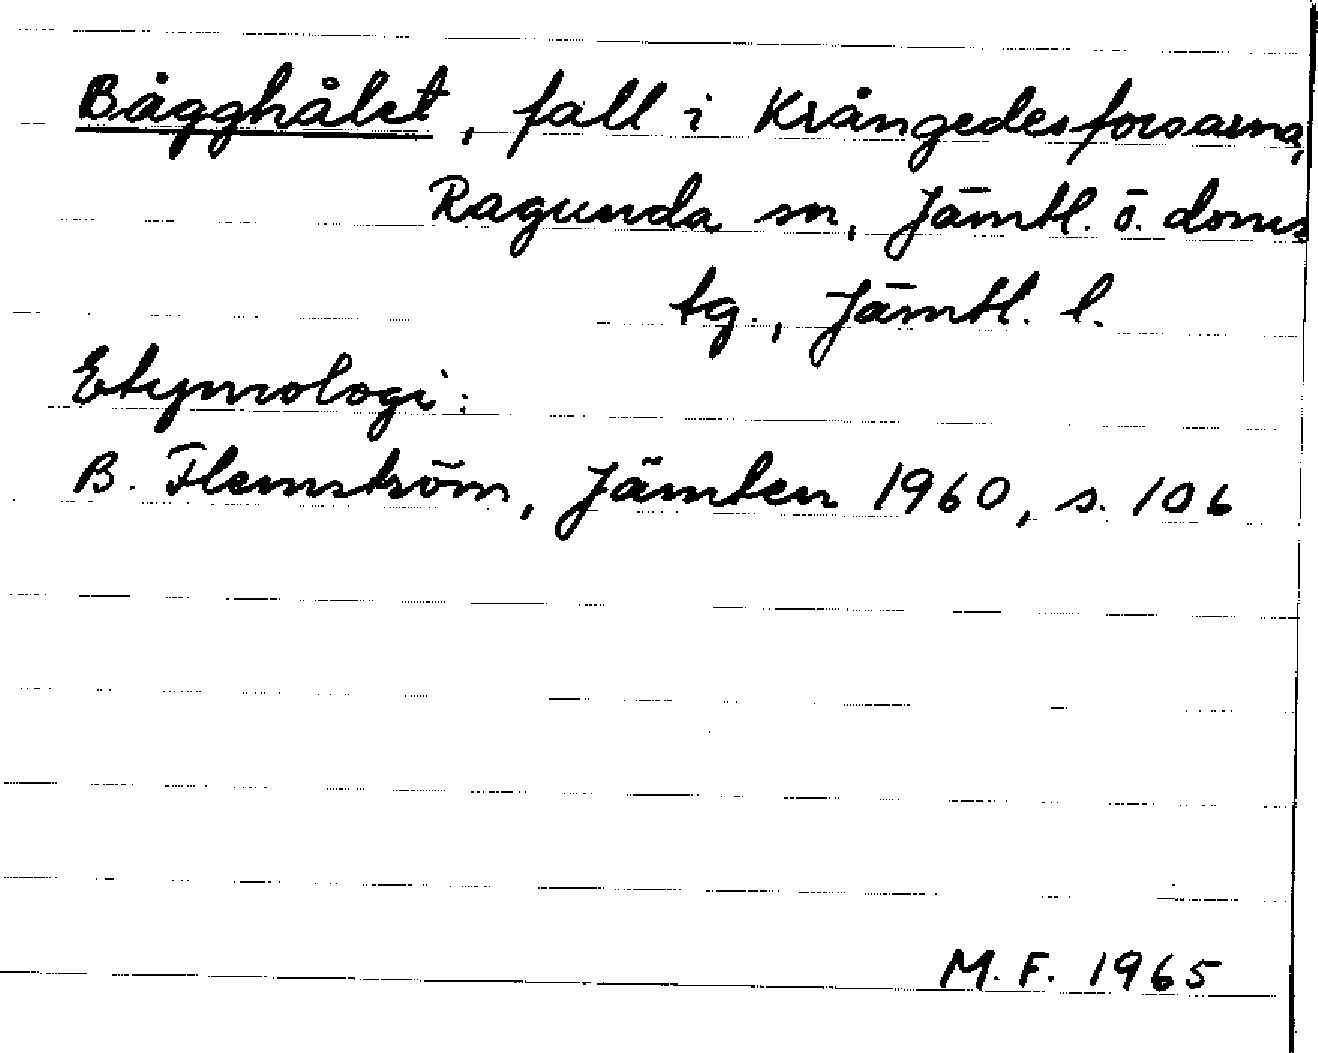 Bågghålet, fall i Krångedesforsarna,
Ragunda sn, Jämtl. ö. doms
tg., Jämtl. l.
Etymologi:
B. Flemström, Jämten 1960, s. 106
M. F. 1965